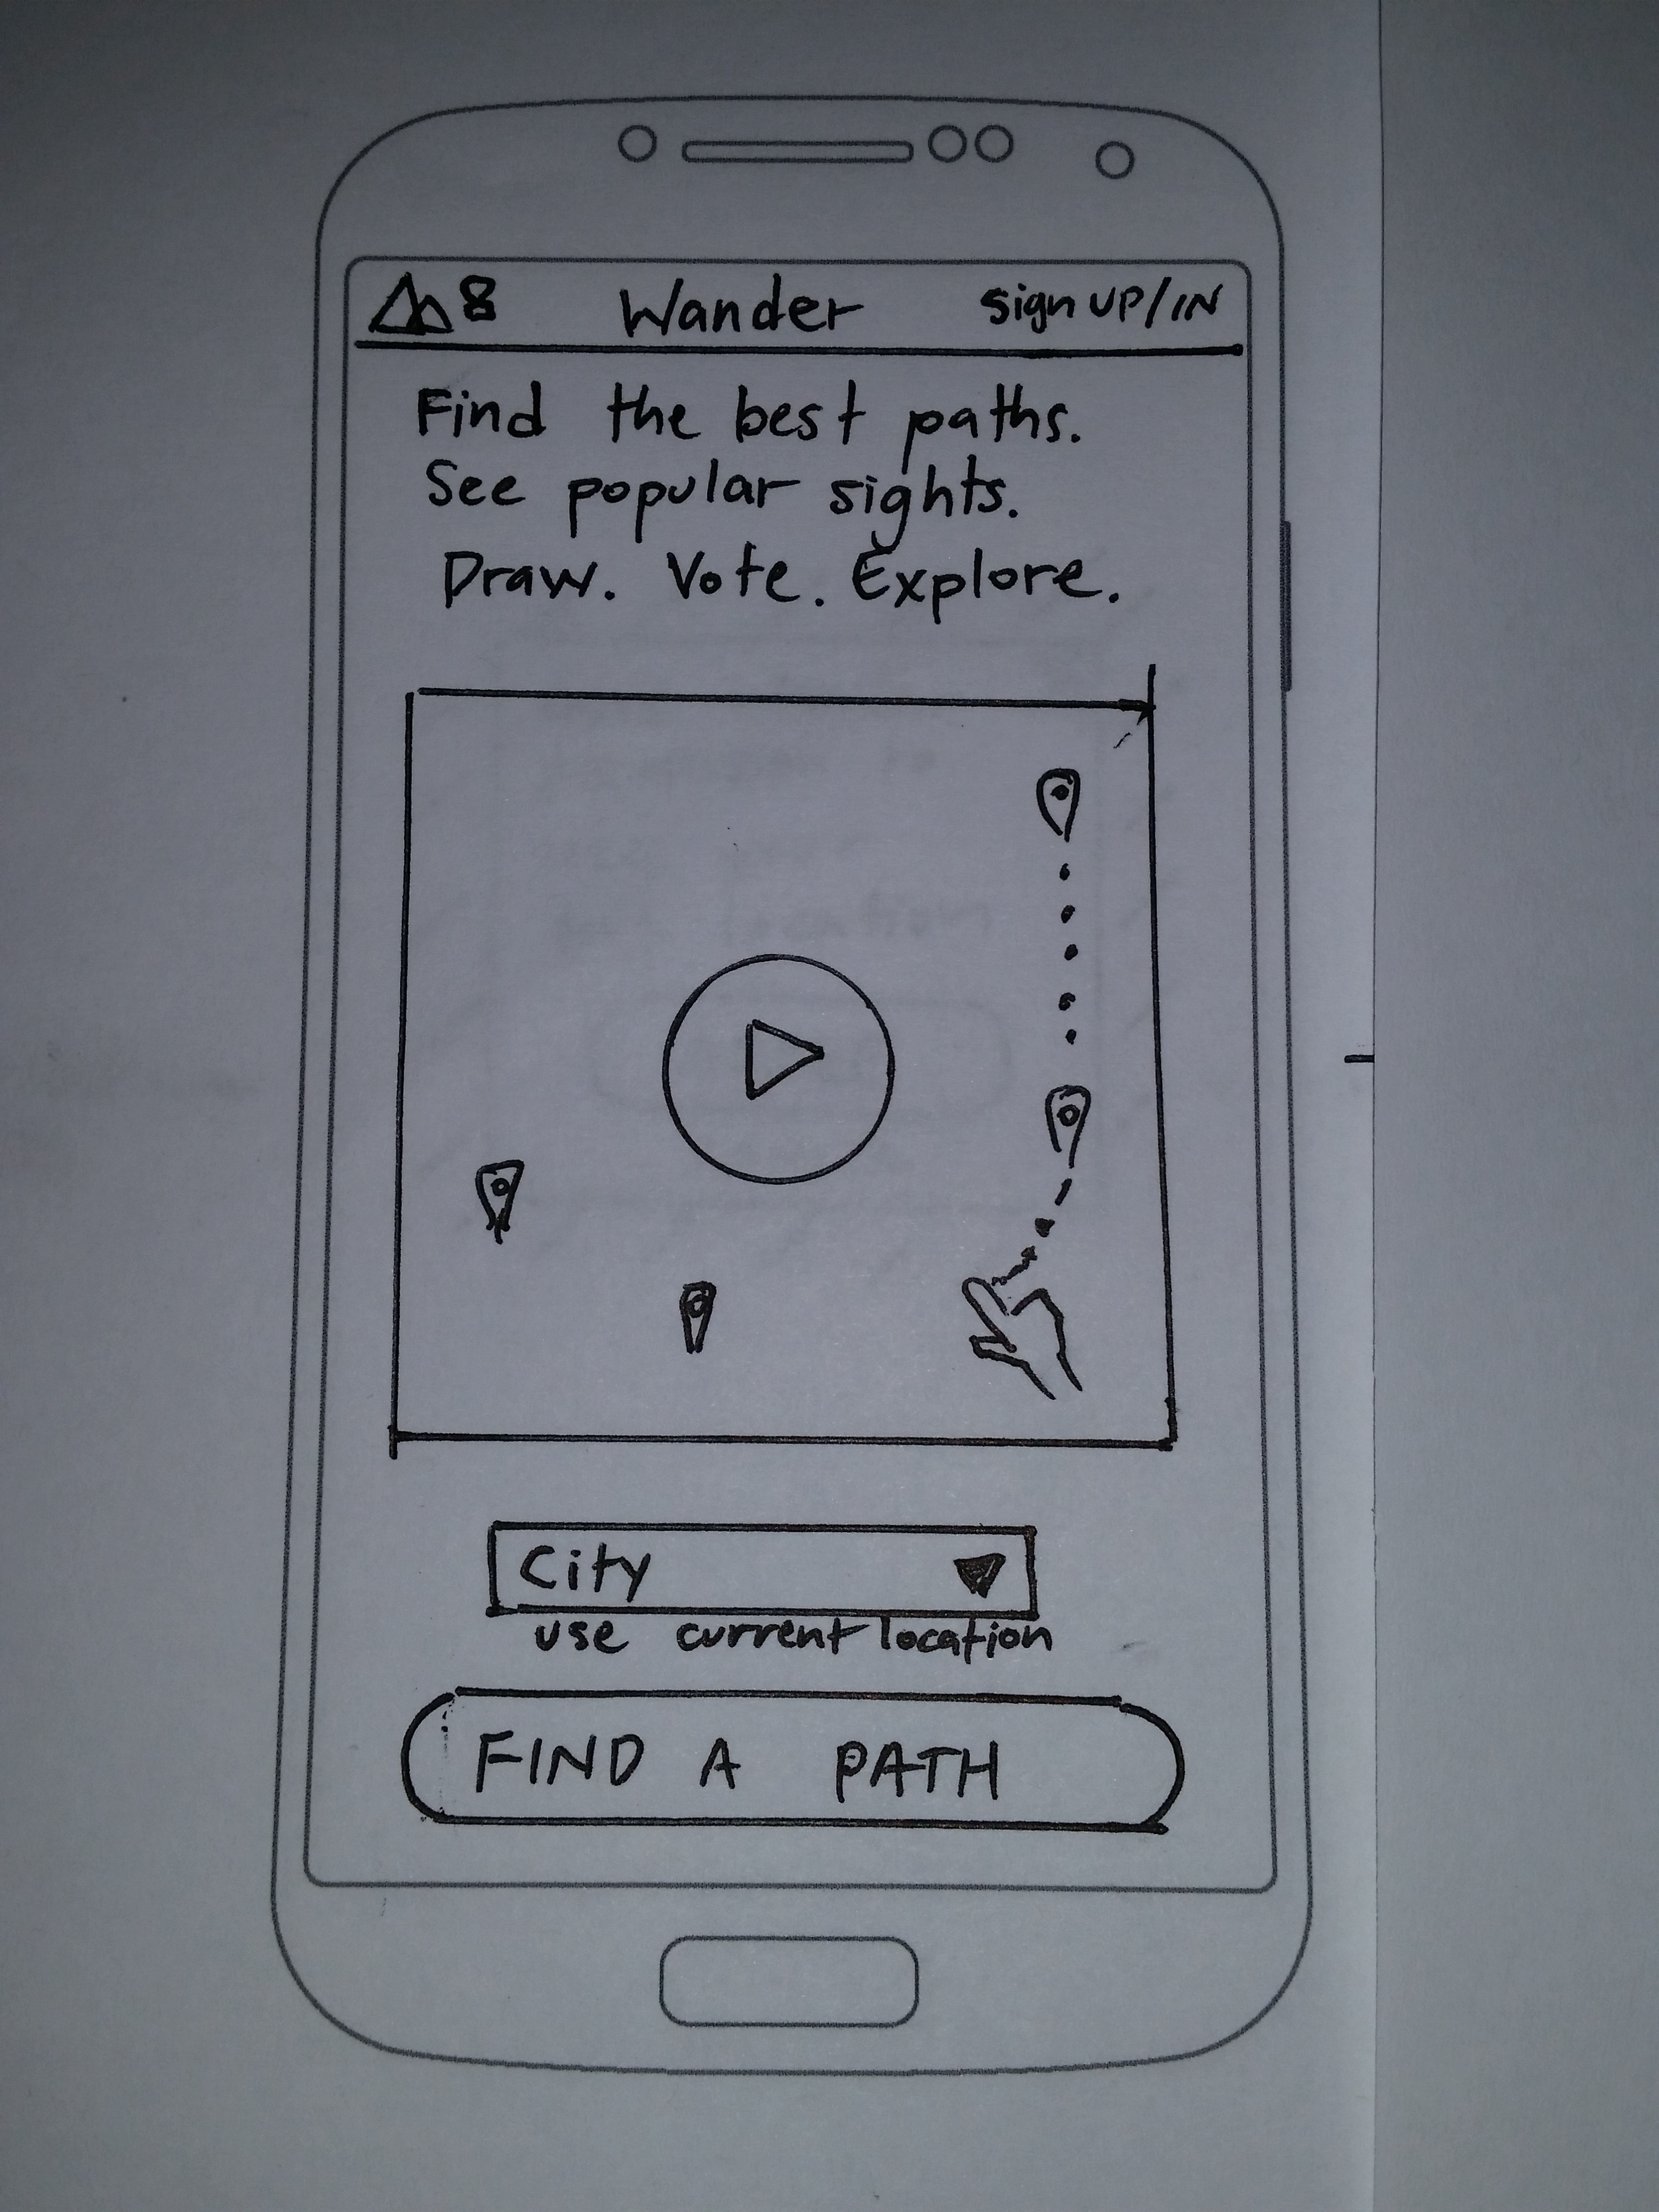 8 Wander sign UP/IN
Find the best paths.
See popular sights.
Draw. Vote. Explore.
City
use current location
FIND A PATH